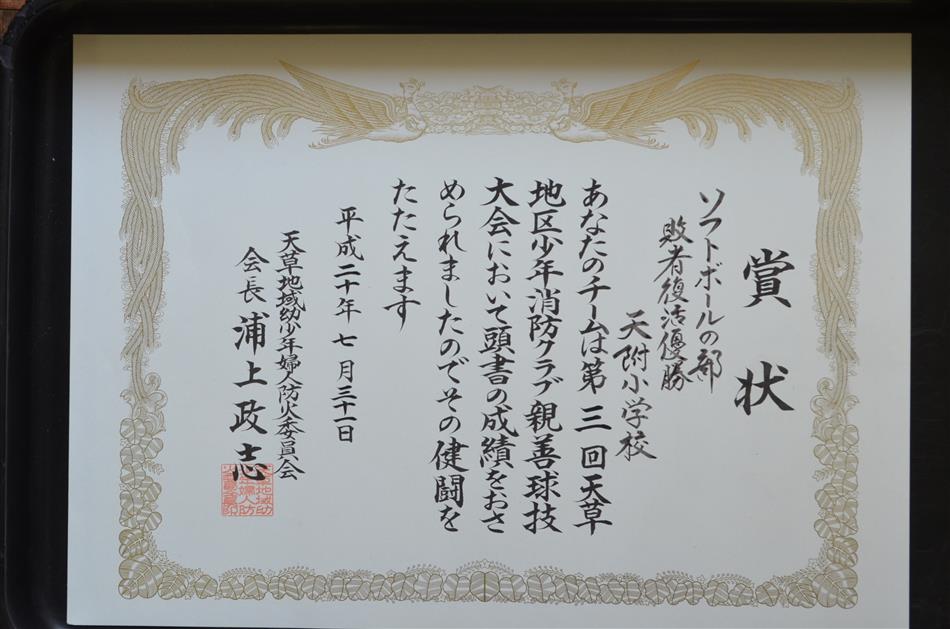 賞状
ソフトボールの部
敗者復活優勝
天附小学校
あなたのチームは第三回天草
地区少年消防クラブ親善球技
大会において頭書の成績をおさ
められましたのでその健闘を
たたえます
平成二十年七月三十一日
天草地域幼少年婦人防火委員会
会長 浦上政志